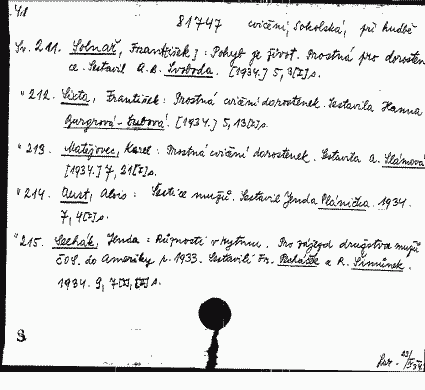 81747 cvičení, Sokolská, při hudbě
Sv. 211. Solnař, Frant[išek]: Pohyb je život. Prostná pro dorosten
ce. Sestavil A. B. Svoboda. [1934.] 5, 3[I] s.
" 212. Sixta, František: Prostná cvičení dorostenek. Sestavila Hanna
Burgrová-Dubová. [1934.] 5, 13[I] s.
" 213. Matějovec, Karel: Prostná cvičení dorostenek. Sestavila A. Slámová
[1934.] 7, 21[I] s.
" 214. Aust, Alois: Šestice mužů. Sestavil Jenda Plánička. 1934.
7, 4[I] s.
" 215. Sechák, Jenda: Různosti v rytmu. Pro zájezd družstva mužů
ČOS. do Ameriky r. 1933. Sestavili Fr. Pecháček a R. Šimůnek.
1934. 9, 7[I], [I] s.
S